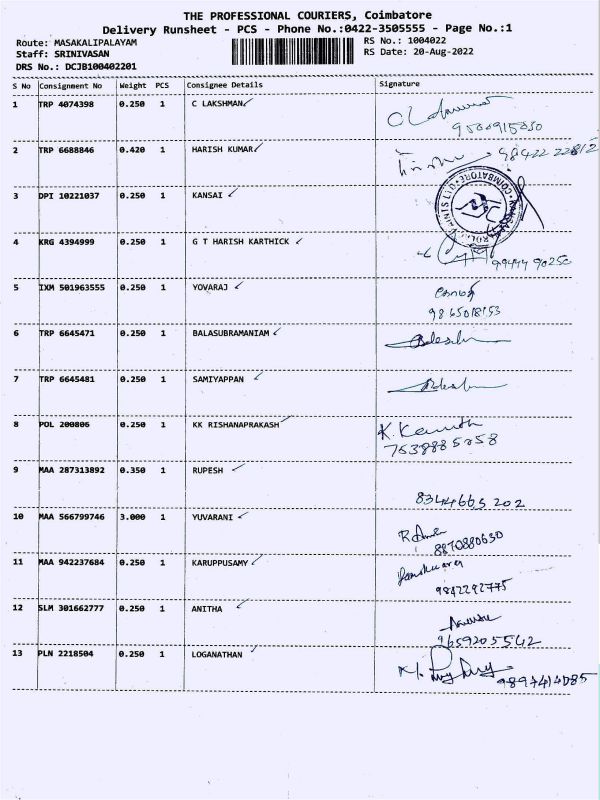 THE PROFESSIONAL COURIERS, Coimbatore
Delivery Runsheet - PCS - Phone No.:0422-3505555 - Page No.:1
Route: MASAKALIPALAYAM RS No.: 1004022
Staff: SRINIVASAN RS Date: 20-Aug-2022
DRS No.: DCJB100402201
S No Consignment No Weight PCS Consignee Details Signature
1 TRP 4074398 0.250 1 C LAKSHMAN
2 TRP 6688846 0.420 1 HARISH KUMAR
3 DPI 10221037 0.250 1 KANSAI
COIMBATORE
4 KRG 4394999 0.250 1 G T HARISH KARTHICK
99444 90250
5 IXM 501963555 0.250 1 YOVARAJ
9865018153
6 TRP 6645471 0.250 1 BALASUBRAMANIAM
7 TRP 6645481 0.250 1 SAMIYAPPAN
8 POL 200806 0.250 1 KK RISHANAPRAKASH
9 MAA 287313892 0.350 1 RUPESH
8344665 202
10 MAA 566799746 3.000 1 YUVARANI
8870880630
11 MAA 942237684 0.250 1 KARUPPUSAMY
9842292775
12 SLM 301662777 0.250 1 ANITHA
9659205542
13 PLN 2218504 0.250 1 LOGANATHAN